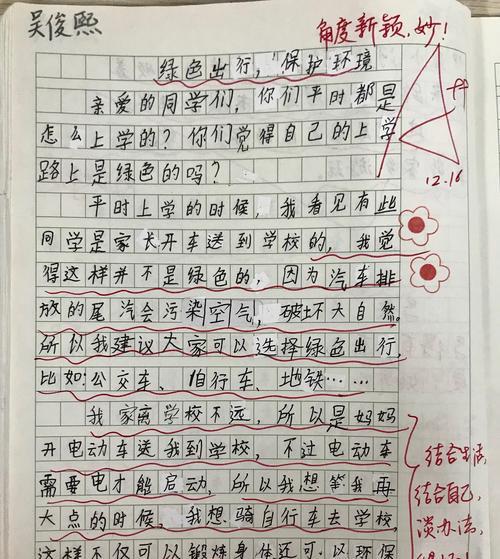 吴俊熙
角度新颖,妙!
绿色出行,保护环境
亲爱的同学们,你们平时都是
怎么上学的?你们觉得自己的上学
路上是绿色的吗?
12.16
平时上学的时候,我看见有些
同学是家长开车送到学校的,我觉
得这样并不是绿色的,因为汽车排
放的尾汽会污染空气,破坏大自然。
所以我建议大家可以选择绿色出行,
比如:公交车、自行车、地铁……
我家离学校不远,所以是妈妈
开电动车送我到学校,不过电动车
需要电才能启动,所以我想等我再
大点的时候,我想骑自行车去学校,
这样不仅可以锻炼身体还可以环保
结合生活,
结合自己,
谈办法,